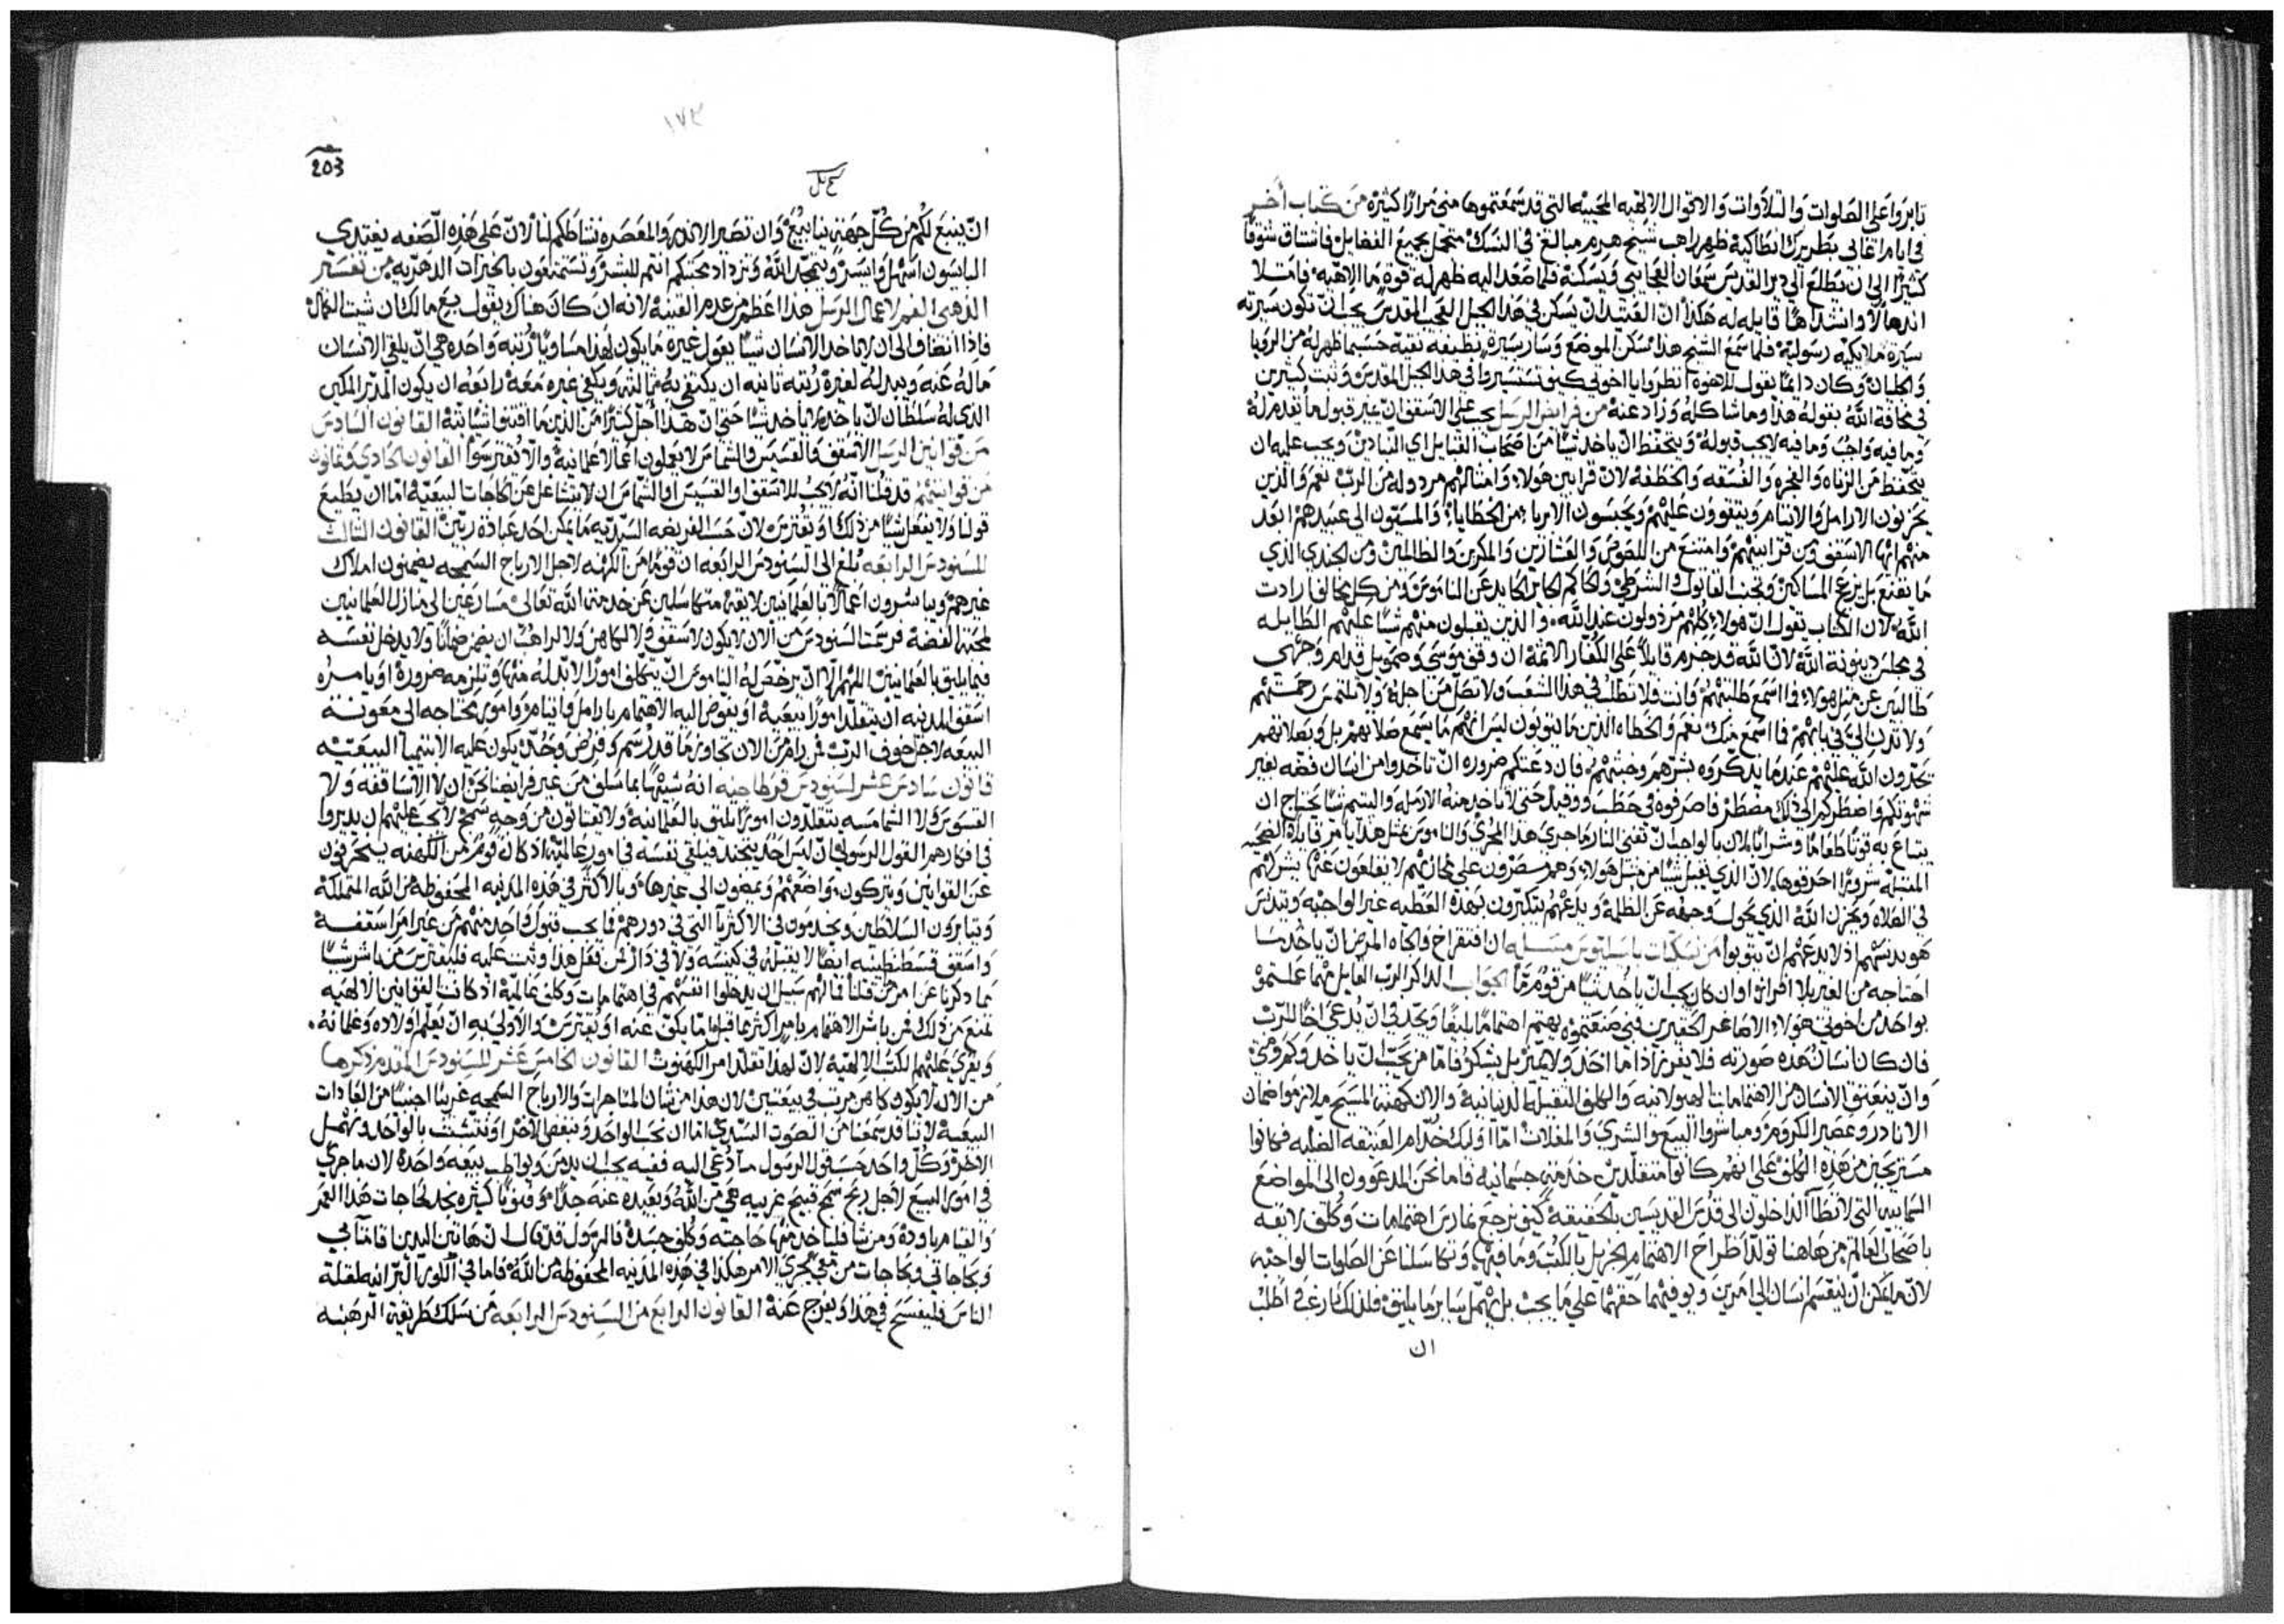 ثابروا على الصلوات والتلاوات والاقوال الالهيه المحييه التي قد سمعتموها مني مرارًا كثيرة من كتاب أخر
في ايام اغاتى بطريرك انطاكية ظهر راهب شيخ هرم مبالغ في النسك متحمل بجميع الفضايل فاشتاق شوقًا
كثيرًا الى ان يطلع الى دير القديس سمعان العجايبي ويسكنه فلما صعد اليه ظهر له قوة ما الاهية فامتلا
انذهالًا وانشداهًا قايله له هكذا ان الفتيد ان يسكن في هذا الجبل العجب المقدس يجب ان تكون سيرته
سيرة ملايكيه رسولية فلما سمع الشيخ هذا سكن الموضع وسار سيرة نظيفه نقية حسبما ظهر له من الرويا
وكان دايمًا يقول للاخوة انظروا يا اخوتي كيف تستسيروا في هذا الجبل المقدس وثبت كثيرين
في مخافة الله بقوله هذا وما شاكله وزاد عنه من فرايض الرسل يجب على الاسقف ان يميز قبول ما تقدم له
وما فيه واجب وما فيه لا يجب قبوله ويتحفظ ان ياخذ شيًا من اصحاب القبايل اي النبادين ويجب عليه ان
يتحفظ من الزناه والفجره والفسقه والخطفه لان قرابين هولاء وامثالهم مردوله من الرب نعم والذين
يحزنون الارامل والايتام ويتقوون عليهم ويحبسون الابرياء من الخطايا والمسيّون الى عبيدهم ابعد
منهم ايها الاسقف ومن قرابينهم وامتنع من اللصوص والعشارين والمكرين والظالمين ومن الجندي الذي
ما يقنع بل يزعج المساكين وتجنب القاتول والشرطي والحاكم الجاير الحايد عن الناموس ومن كل مخالف ارادت
الله لان الكتاب يقول ان هولاء كلهم مرذولون عند الله والذين يقبلون منهم شيًا عليهم الطايله
في مجلس دينونة الله لان الله قد جزم قايلًا على الكفار الاثمة ان وقف موسى وصمويل قدام وجهي
طالبين عن مثل هولاء فما اسمع طلبتهم وانت فلا تطلب في هذا الشعب ولا تصل من اجله ولا تلتمس رحمتهم
ولا تدن الي في بابهم فما اسمع منك نعم والخطاه الذين ما يتوبون ليس انهم ما يسمع صلاتهم بل وبصلاتهم
يحردون الله عليهم عندما يذكروه بشرهم وخبثهم فان دعتكم ضروره ان تاخذوا من انسان فضه بغير
شهوتكم واضطركم الى ذلك مضطر فاصرفوه في حطب ووقيد حتى لا ياخذ منه الارمله واليتيم شيًا يحتاج ان
يبتاع به قوتًا طعامًا وشرابًا لان بالواجب ان تفنى النار ما جرى هذا المجرى والناموس مثل هذا يامر قايلًا الضحيه
في الصلاه ويحزن الله الذي يحول وجهه عن الظلمه ويدعهم يتكبرون بهذه العطيه غير الواجبه ويتدنس
هو بدنسهم اذ لا يدعهم ان يتوبوا من نسكيات باسيليوس مسله ان افتقر اخ والجاه المرض ان ياخذ شيا
احتاجه من الغير بلا افراز او ان كان يجب ان ياخذ شيًا من قوم ما الجواب لذاكر الرب القايل مهما عملتموه
بواحد من اخوتي هولاء الاصاغر الحقيرين فبي صنعتموه يهتم اهتمامًا بليغًا ويجد في ان يدعى اخًا للرب
فان كان انسان هذه صورته فلا يفوز اذا ما اخذ ولا يميز بل يشكر فاما من يجب ان ياخذ وكم ومتى
وان ينعتق الانسان من الاهتمامات الهيولانيه والكلف الثقيله الدنيانية والان كهنة المسيح ملازمو اضمان
الانادر وعصير الكروم ومباشروا البيع والشرى والمغلات امّا اوليك خدّام العتيقه الظليه فكانوا
مستريحين من هذه الكلف على انهم كانوا متقلدين خدمة جسمانية فاما نحن المدعوون الى المواضع
السمايية التي لا تطأ الداخلون الى قدس القديسين بالحقيقة كيف نرجع نمارس اهتمامات وكلف لايقه
باصحاب العالم من هاهنا تولد اطراح الاهتمام الجزيل بالكتب وما فيها وتكاسلنا عن الصلوات الواجبه
لان ما يمكن ان ينقسم انسان الى امرين ويوفيهما حقهما على ما يجب بل يهمل ساير ما يليق فلذلك ارغب اطلب
ان
١٧٣
203
ان ينبع لكم من كل جهة ينابيع وان تصير الاندر والمعصره نشاطكم لنا لان على هذه الصفه يغتدي
البايسون اسهل وايسر ويتمجد الله وتزداد محبتكم انتم للبشر وتستمتعون بالخيرات الدهرية من تفسير
الذهبي الفم لاعمال الرسل هذا اعظم من عدم القنية لانه ان كان هناك يقول بيع مالك ان شيت الكمال
فاذا انضاف الى ان لا ياخذ الانسان شيًا يعول غيره ما يكون لهذا مساويًا رتبه واحده هي ان يلقي الانسان
ماله عنه ويبدله لغيره رتبه ثانيه ان يكتفي به ثالثه ويكفي غيره معه رابعه ان يكون المدبر المكين
الذي له سلطان ان ياخذ ما ياخذ شيًا حتى ان هذا اجل كثيرًا من الذين ما اقتنوا شيًا بتة القانون السادس
من قوانين الرسل الاسقف والقسيس والشماس لا يعملون اعمالا عالمانية والا تُقترسوا القانون الحادي وثمانون
من قوانينهم قد قلنا انه لا يجب للاسقف او القسيس او الشماس ان لا يتشاغل عن الحاجات البيعية اما ان يطيع
قولنا ولا يفعل شيًا من ذلك او تُقترس لان حسب الفريضه السيديه ما يمكن احد عبادة ربين القانون الثالث
للسنودس الرابعه بلغ الى السنودس الرابعه ان قومًا من الكهنه لاجل الارباح السمجه يضمنون املاك
غيرهم ويباشرون اعمالًا بالعلمانيين لايقه متكاسلين عن خدمة الله تعالى مسارعين الى منازل العلمانيين
لمحبة الفضة فرسمت السنودس من الان لا يكون لاسقف ولا لكاهن ولا لراهب ان يضمن ضمانًا ولا يدخل نفسه
فيما يليق بالعلمانيين اللهم الا ان يرخص له الناموس ان يتكلف امورًا لا بد له منها وتلزمه ضرورة او يامره
اسقف المدينه ان يتقلد امورًا بيعية او يفوض اليه الاهتمام بارامل وايتام وامور محتاجه الى معونة
البيعه لاجل خوف الرب فمن رام من الان تجاوز ما قد رسم وفرض وحدد يكون عليه الابيتيميا البيعتيه
قانون سادس عشر لسنودس قرطاجنيه انه شبيهًا بما سلف من غير فرايضنا نحن ان لا الاساقفه ولا
القسوس ولا الشمامسه يتقلدون امورًا يليق بالعلمانية ولا يقتاتون من وجه سمج لا يجب عليهم ان يديروا
في افكارهم القول الرسولي ان ليس احد يتجند فيلقي نفسه في امور عالمية اذ كان قوم من الكهنه ينحرفون
عن القوانين ويتركون مواضعهم ويمضون الى غيرها وبالاكثر في هذه المدينه المحفوظه من الله المتملكه
ويثابرون السلاطين ويخدمون في الاكثريا التي في دورهم فما يجب قبول واحد منهم من غير امر اسقفه
واسقف قسطنطينيه ايضًا لا يقبله في كنيسه ولا في دار فمن فعل هذا وثبت عليه فليقترس ومن باشر شيًا
مما ذكرنا عن امر من قلنا فما لهم سبيل ان يدخلوا انفسهم في اهتمامات وكلف عالمية اذ كانت القوانين الالهيه
تمنع من ذلك فمن باشر الاهتمام بامير اكثر مما قيل اما يكف عنه او يُقترس والاولى به ان يعلم اولاده وغلمانه
ويقرى عليهم الكتب الالهية لان لهذا تقلد امر الكهنوت القانون الخامس عشر للسنودس المقدم ذكرها
من الان لا يكون كاهن مرتب في بيعتين لان هذا من شان المتاجرات والارباح السمجه غريبًا اجنبيًا من العادات
البيعية لاننا قد سمعنا من الصوت السيدي اما ان يحب الواحد ويبغض الاخر او يتشبث بالواحد ويهمل
الاخر وكل واحد حسب قول الرسول ما دُعي اليه ففيه يجب ان يدمن ويواظب بيعه واحدة لان ما جرى
في امور البيع لاجل ربح سمج قبيح غريبه هي من الله وبعيده عنه جدًا وفنونًا كثيره يجد لحاجات هذا العمر
والقيام باوده ومن شا فلياخذ منها حاجته وكلف جسده فالرسول قد قال ان هاتين اليدين قامتا بي
وبحاجاتي وبحاجات من معي يجري الامر هكذا في هذه المدينه المحفوظه من الله فاما في الكور البرانيه لقلة
الناس فليفسح في هذا ويفرج عنه القانون الرابع من السنودس الرابعه من سلك طريقة الرهبنه